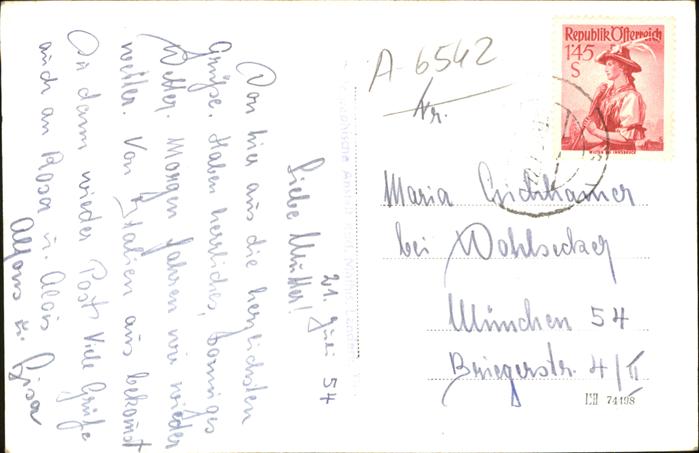 21. Juli 54
Liebe Mutter!
Von hier aus die herzlichsten
Grüße. Haben herrliches, sonniges
Wetter. Morgen fahren wir wieder
weiter. Von Italien aus bekomst
Du dann wieder Post Viele Grüße
auch an Rosa u. Alois
Alfons u. Gisa
A-6542
Nr.
Republik Österreich
1'45
S
Maria
bei Wohlsecker
München 54
Briegerstr. 4/II
74198